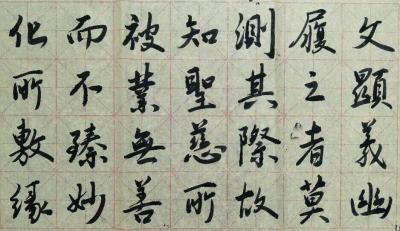 文顯義幽
履之者莫
測其際故
知聖慈所
被業無善
而不臻妙
化所敷緣